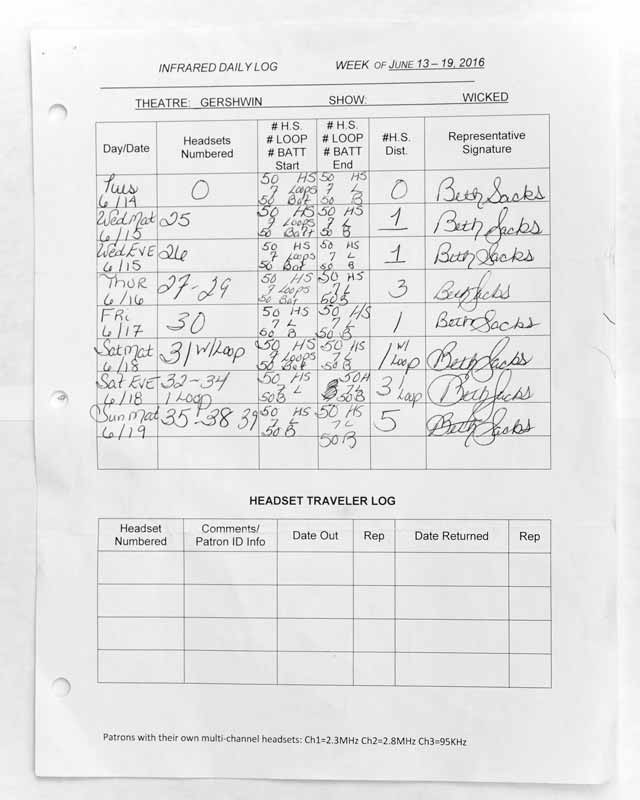 INFRARED DAILY LOG WEEK OF JUNE 13 – 19, 2016
THEATRE: GERSHWIN SHOW: WICKED
Day/Date
Headsets Numbered
# H.S. # LOOP # BATT Start
# H.S. # LOOP # BATT End
#H.S. Dist.
Representative Signature
Tues 6/14 0 50 HS 7 Loops 50 Bat 50 HS 7 L 50 B 0 Beth Sacks
Wed Mat 6/15 25 50 HS 7 Loops 50 Batt 50 HS 7 L 50 B 1 Beth Sacks
Wed EVE 6/15 26 50 HS 7 Loops 50 Bat 50 HS 7 L 50 B 1 Beth Sacks
THUR 6/16 27-29 50 HS 7 Loops 50 Bat 50 HS 7L 50B 3 Beth Sacks
FRi 6/17 30 50 HS 7 L 50 B 50 HS 7 L 50 B 1 Beth Sacks
Sat Mat 6/18 31 W/Loop 50 HS 7 Loops 50 Bat 50 HS 7 L 50 B 1 W/ Loop Beth Sacks
Sat EVE 6/18 32-34 1 Loop 50 HS 7 L 50B 50H 7 L 50 B 3 1 Loop Beth Sacks
Sun Mat 6/19 35-38 39 50 HS 7 L 50 B 50 HS 7 L 50 B 5 Beth Sacks
HEADSET TRAVELER LOG
Headset Numbered
Comments/ Patron ID Info
Date Out
Rep
Date Returned
Rep
Patrons with their own multi-channel headsets: Ch1=2.3MHz Ch2=2.8MHz Ch3=95KHz